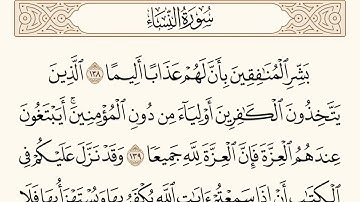 سُورَةُ النِّسَاءِ
بَشِّرِ الْمُنَافِقِينَ بِأَنَّ لَهُمْ عَذَابًا أَلِيمًا ١٣٨ الَّذِينَ
يَتَّخِذُونَ الْكَافِرِينَ أَوْلِيَاءَ مِن دُونِ الْمُؤْمِنِينَ ۚ أَيَبْتَغُونَ
عِندَهُمُ الْعِزَّةَ فَإِنَّ الْعِزَّةَ لِلَّهِ جَمِيعًا ١٣٩ وَقَدْ نَزَّلَ عَلَيْكُمْ فِي
الْكِتَابِ أَنْ إِذَا سَمِعْتُمْ آيَاتِ اللَّهِ يُكْفَرُ بِهَا وَيُسْتَهْزَأُ بِهَا فَلَا